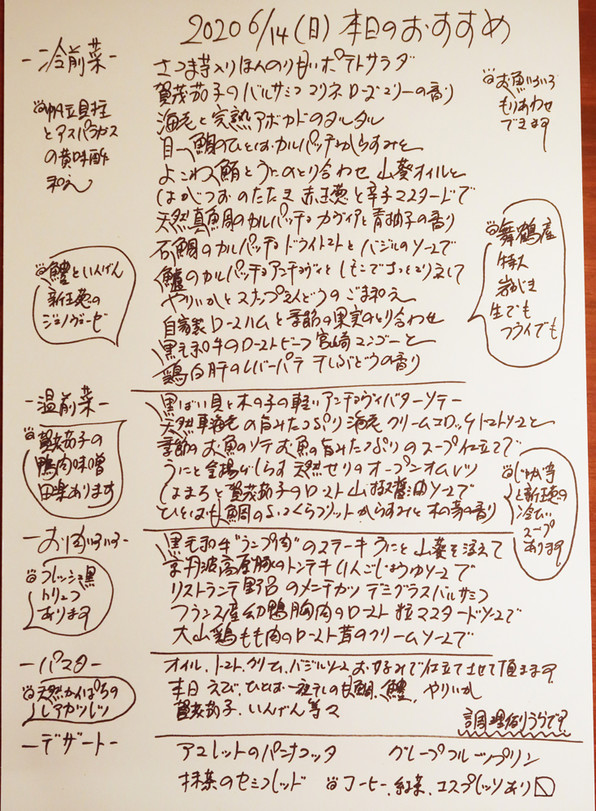 2020 6/14(日) 本日のおすすめ
-冷前菜-
さつま芋入りほんのり甘いポテトサラダ
賀茂茄子のバルサミコマリネローズマリーの香り
海老と完熟アボカドのタルタル
目一鯛のひとはカルパッチョからすみと
よこわ鮪とうにのとり合わせ 山葵オイルと
はがつおのたたき 赤玉葱と辛子マスタードで
天然真魚鰹のカルパッチョ カヴィアと青柚子の香り
石鯛のカルパッチョ ドライトマトとバジルのソースで
鱸のカルパッチョアンチョヴィと
やりいかとスナップえんどうのごま和え
自家製ロースハムと季節の果実のとり合わせ
黒毛和牛のローストビーフ 宮崎マンゴーと
鶏白肝のレバーパテ 干しぶどうの香り
帆立貝柱
とアスパラガス
の黄味酢
和え
お魚いろいろ
もりあわせ
できます
鱧といんげん
新玉葱の
ジェノヴェーゼ
舞鶴産
特大
岩がき
生でも
フライでも
-温前菜-
黒ばい貝と木の子の軽いアンチョヴィバターソテー
天然車海老の旨みたっぷり海老クリームコロッケトマトソースと
季節のお魚のソテーお魚の旨みたっぷりのスープ仕立てで
うにと釜揚げしらす 天然せりのオープンオムレツ
はまちと賀茂茄子のロースト山椒醤油ソースで
ひとはも鯛のふっくらフリットからすみと木の芽の香り
賀茂茄子の
鴨肉味噌
田楽あります
じゃが芋
と新玉葱の
冷たい
スープ
あります
-お肉いろいろ-
黒毛和牛"ランプ肉"のステーキ うにと山葵を添えて
京丹波高原豚のトンテキ りんごしょうゆソースで
リストランテ野呂のメンチカツ デミグラスバルサミコ
フランス産幼鴨胸肉のロースト 粒マスタードソースで
大山鶏もも肉のロースト茸のクリームソースで
フレッシュ黒
トリュフ
あります
-パスタ-
オイル、トマト、クリーム、バジルソースお好みで仕立てさせて頂きます
本日 えび、ひとは一夜干しの甘鯛、鱧、やりいか
賀茂茄子、いんげん等々
調理例うらです
天然かんぱちの
レアカツレツ
-デザート-
アメレットのパンナコッタ
グレープフルーツプリン
抹茶のセミフレッド
コーヒー、紅茶、エスプレッソあり